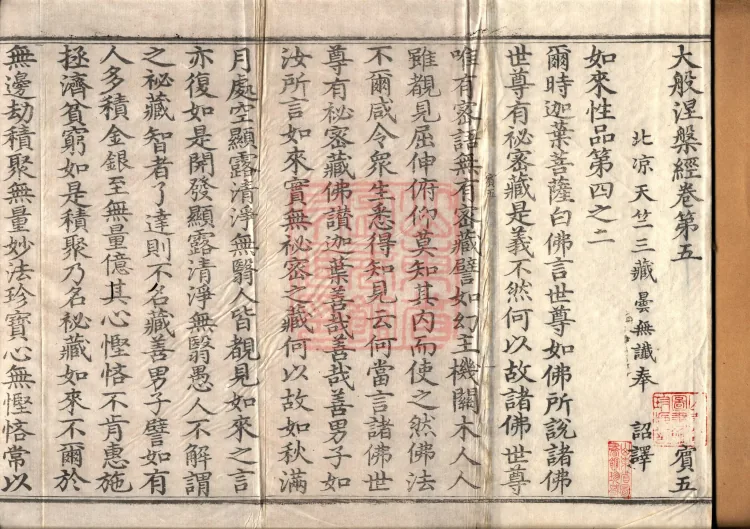 大般涅槃經卷第五 賓五
北凉天竺三藏曇無讖奉 詔譯
如來性品第四之二
爾時迦葉菩薩白佛言世尊如佛所說諸佛
世尊有祕密藏是義不然何以故諸佛世尊
唯有密語無有密藏譬如幻主機關木人人
雖覩見屈伸俯仰莫知其內而使之然佛法
不爾咸令衆生悉得知見云何當言諸佛世
尊有祕密藏佛讃迦葉善哉善哉善男子如
汝所言如來實無祕密之藏何以故如秋滿
月處空顯露清淨無翳人皆覩見如來之言
亦復如是開發顯露清淨無翳愚人不解謂
之祕藏智者了達則不名藏善男子譬如有
人多積金銀至無量億其心慳悋不肯惠施
拯濟貧窮如是積聚乃名祕藏如來不爾於
無邊劫積聚無量妙法珍寶心無慳悋常以
賓五